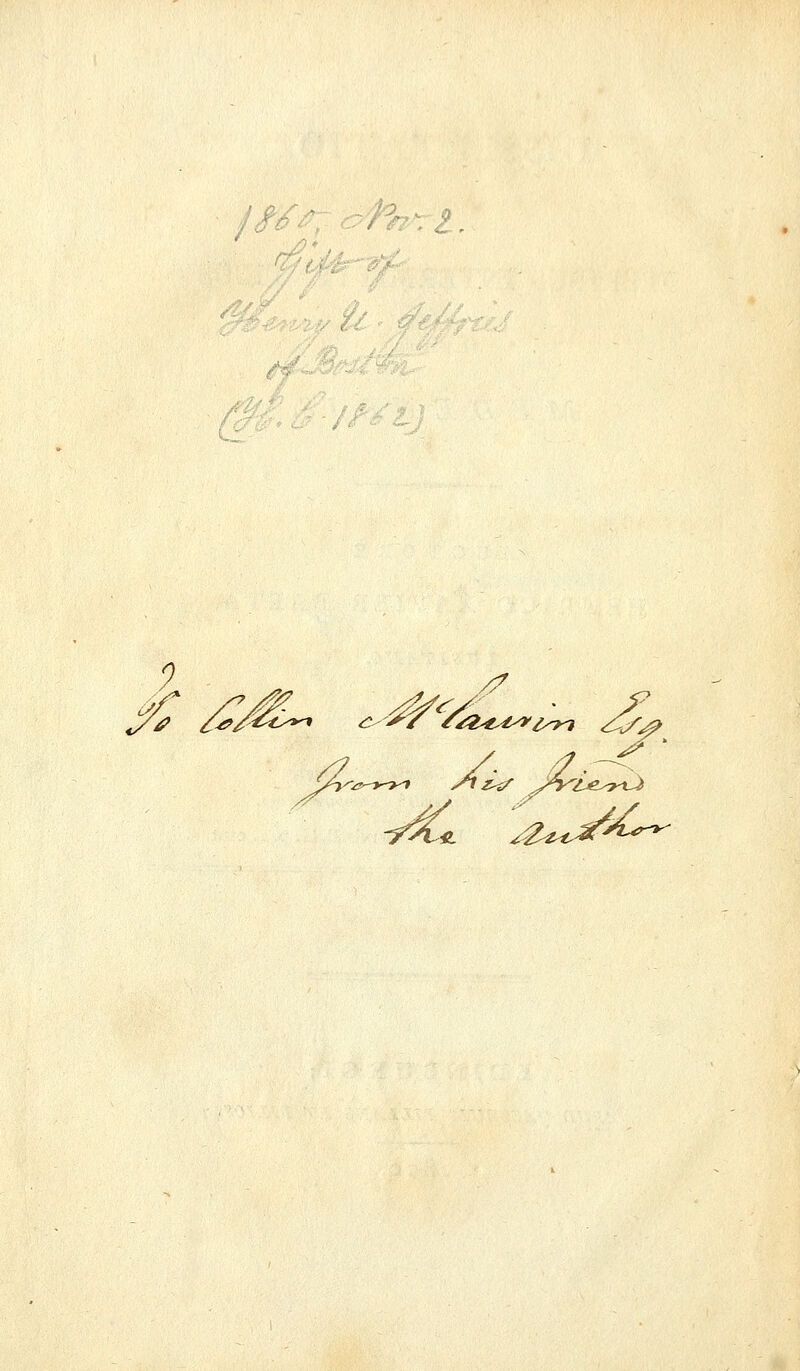 1860, Nov. 2.
Gift of
Henry U. Jeffries
of Boston
(H. C. 1862)
To Collin McLaurin Esq.
from his friend
the author